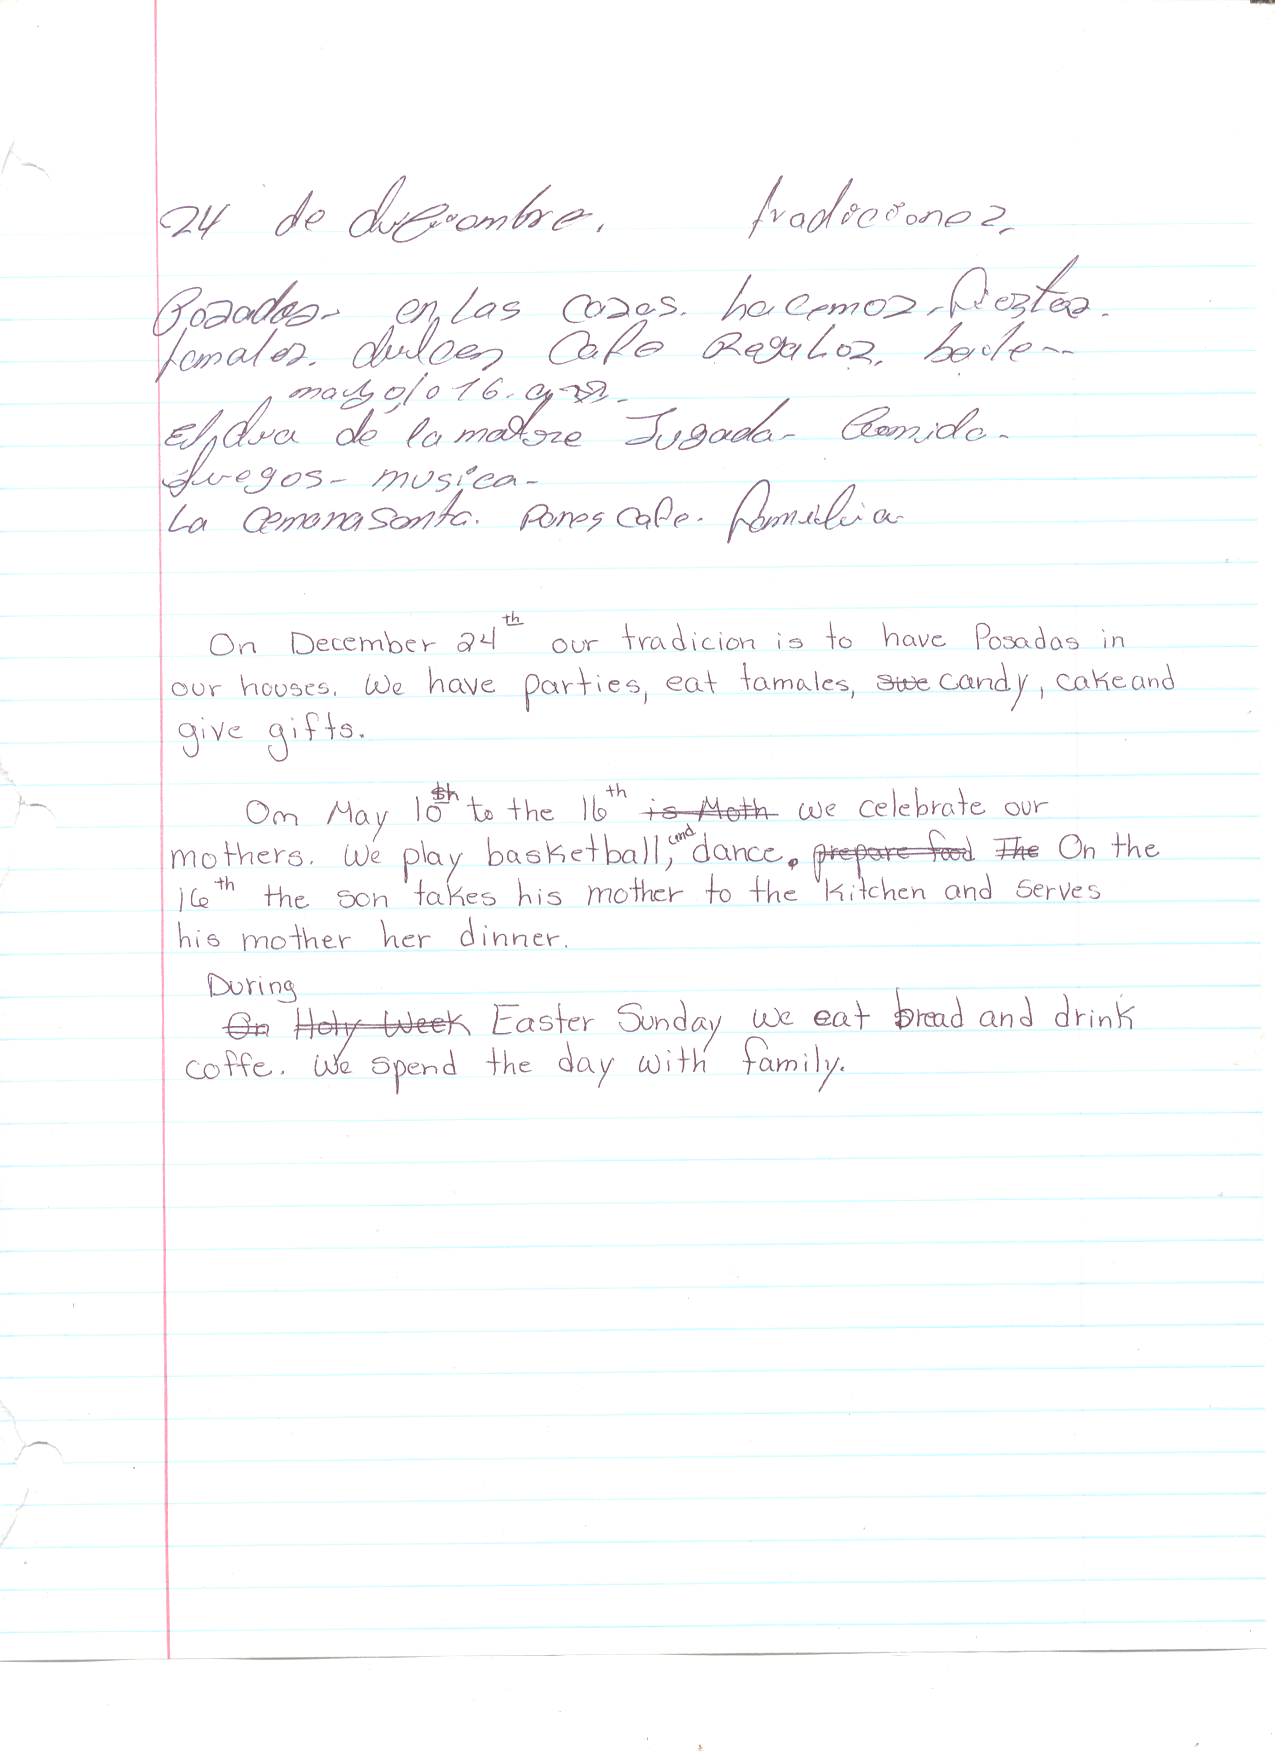 24 de diciembre. tradicciones.
Posadas- en las cazas. hacemos- Fieztas.
tamales. dulces Cafe Regaloz. baile--
mayo/o 16.
El dia de la madre Jugada- Comida-
Juegos- musica-
La Cemana Santa. Panes Cafe. Familia
On December 24th our tradicion is to have Posadas in
our houses. We have parties, eat tamales, swe candy, cake and
give gifts.
On May 10th to the 16th is Moth we celebrate our
mothers. We play basketball, and dance. prepare food The On the
16th the son takes his mother to the kitchen and serves
his mother her dinner.
During
On Holy Week Easter Sunday we eat bread and drink
coffe. We spend the day with family.